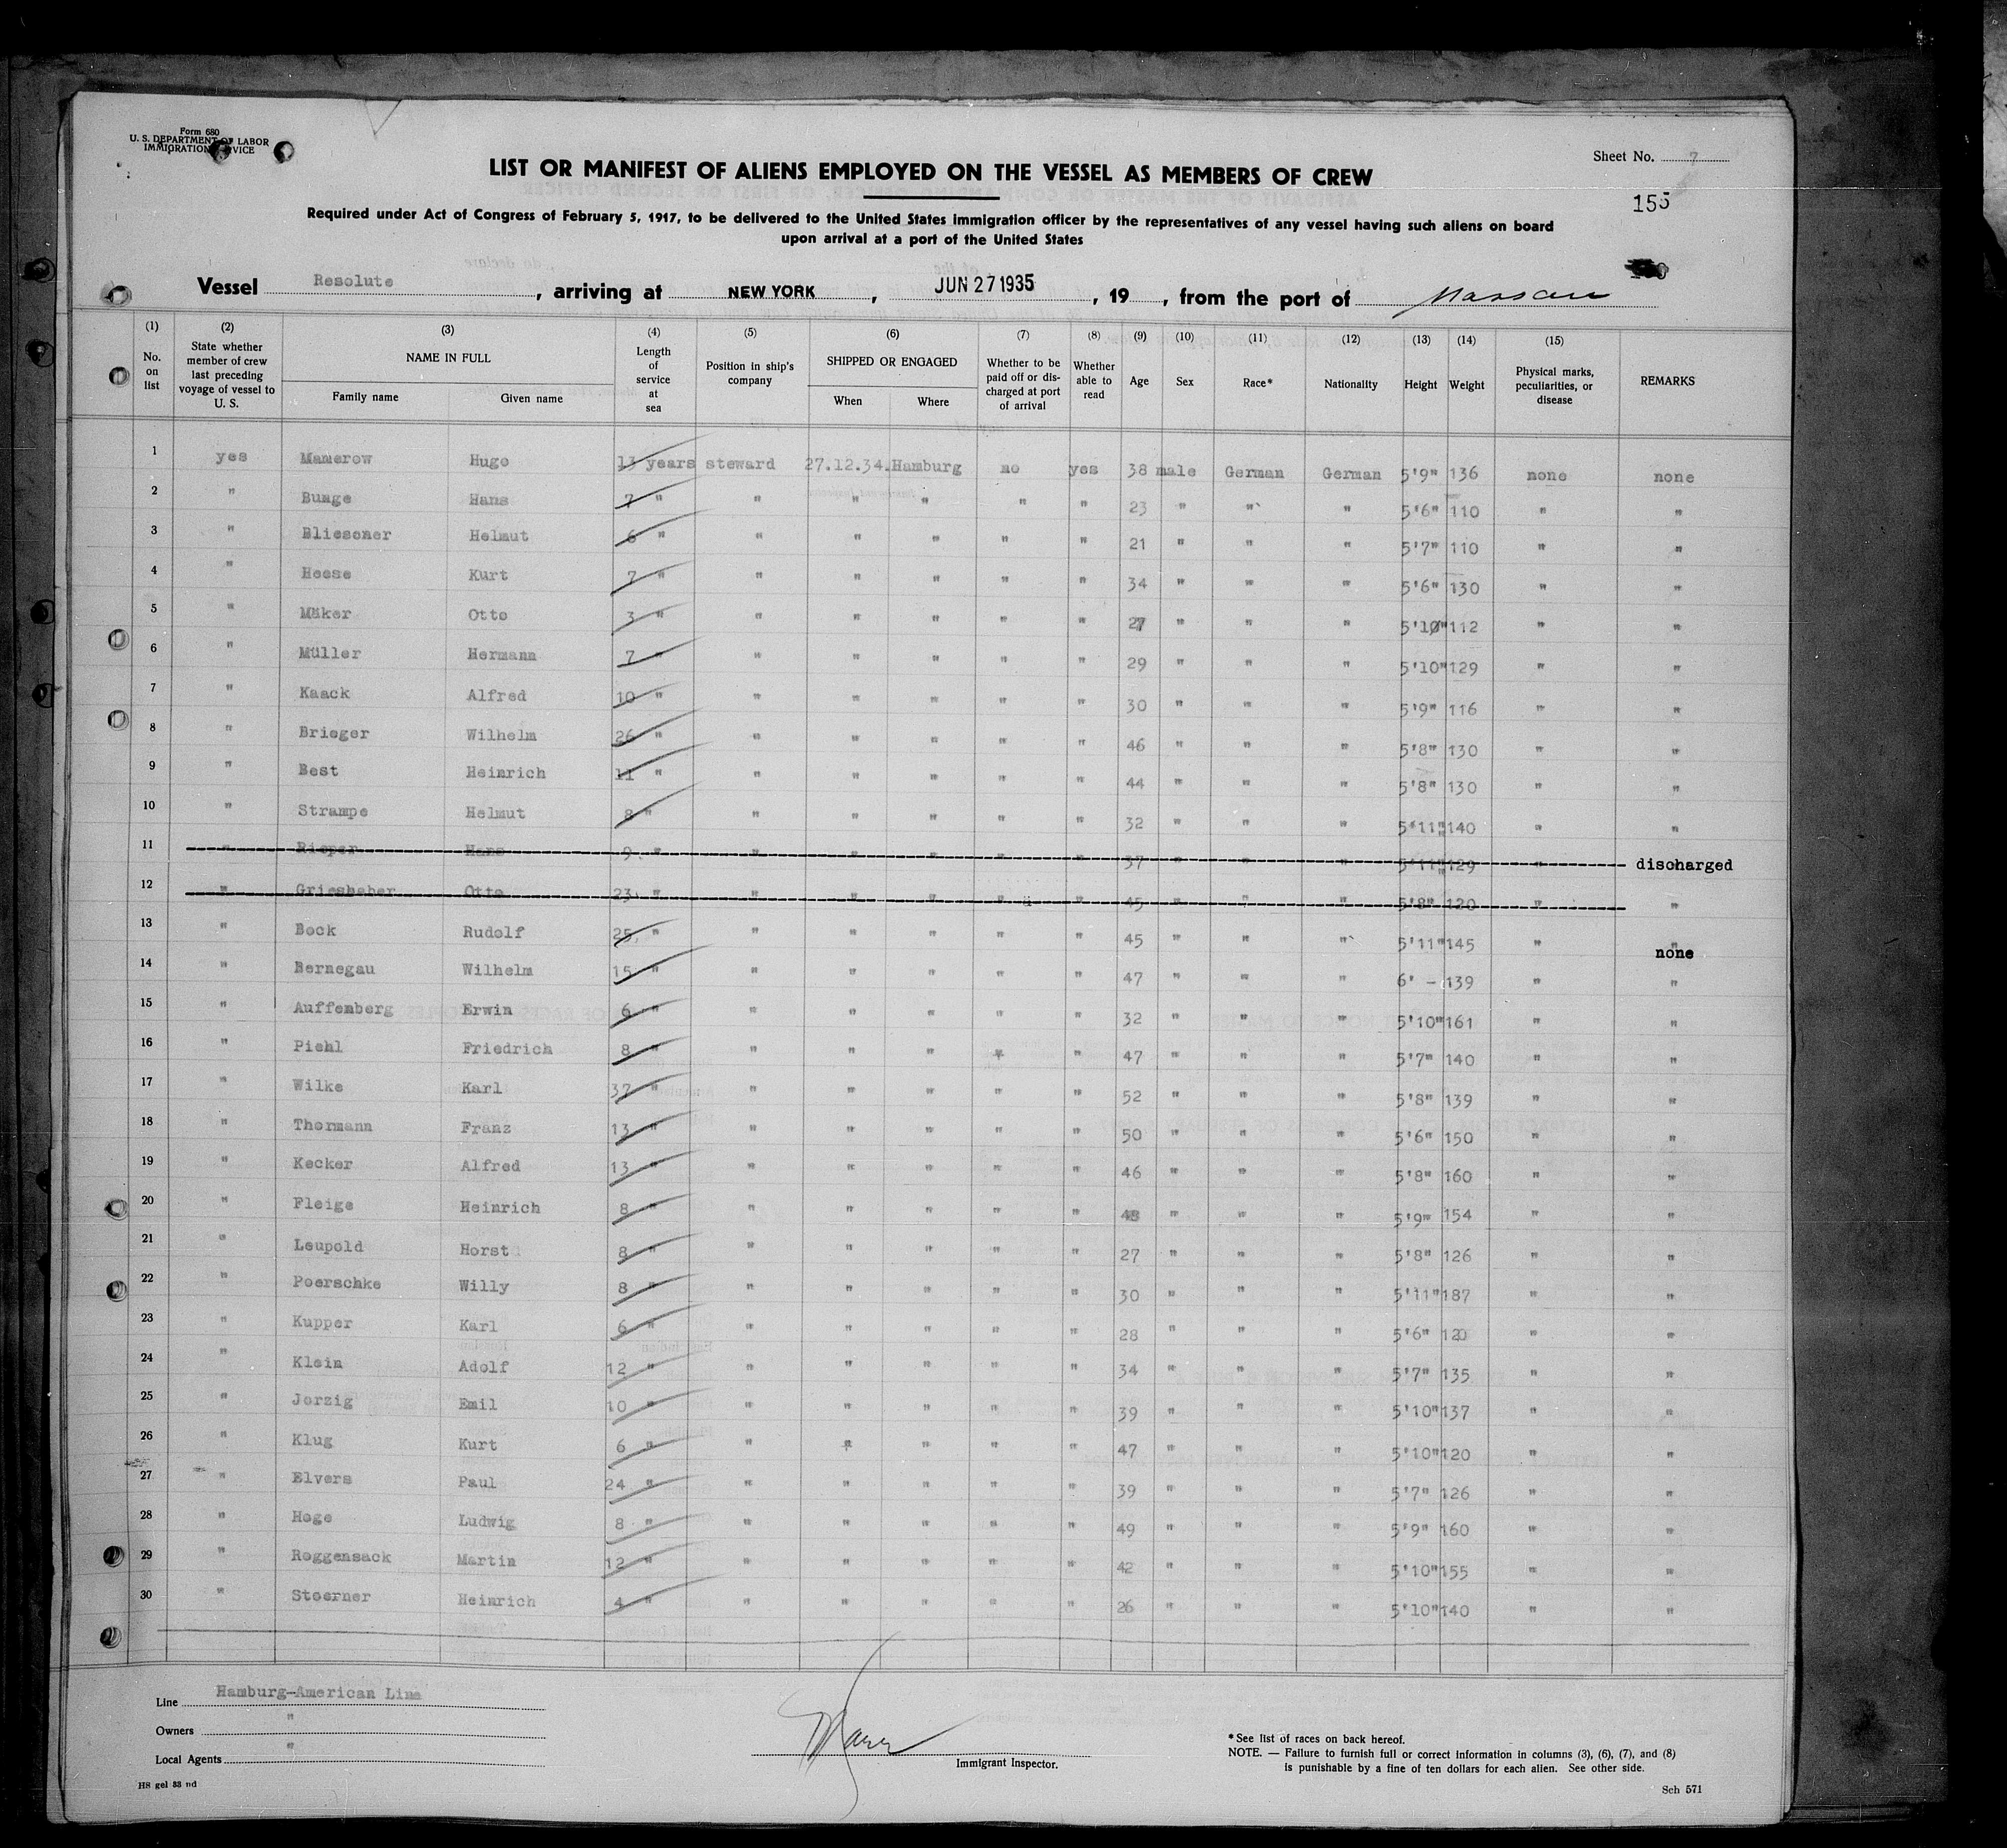 Form 680
U. S. DEPARTMENT OF LABOR
IMMIGRATION SERVICE
Sheet No. 7
LIST OR MANIFEST OF ALIENS EMPLOYED ON THE VESSEL AS MEMBERS OF CREW
155
Required under Act of Congress of February 5, 1917, to be delivered to the United States immigration officer by the representatives of any vessel having such aliens on board
upon arrival at a port of the United States
Vessel Resolute, arriving at NEW YORK, JUN 27 1935, 19 , from the port of Nassau
(1) No. on list (2) State whether member of crew last preceding voyage of vessel to U. S. (3) NAME IN FULL Family name Given name (4) Length of service at sea (5) Position in ship's company (6) SHIPPED OR ENGAGED When Where (7) Whether to be paid off or discharged at port of arrival (8) Whether able to read (9) Age (10) Sex (11) Race* (12) Nationality (13) Height (14) Weight (15) Physical marks, peculiarities, or disease REMARKS
1 yes Mamerow Hugo 13 years steward 27.12.34. Hamburg no yes 38 male German German 5'9" 136 none none
2 " Bunge Hans 7 " " " " " " 23 " " " 5'6" 110 " "
3 " Bliesener Helmut 6 " " " " " " 21 " " " 5'7" 110 " "
4 " Heese Kurt 7 " " " " " " 34 " " " 5'6" 130 " "
5 " Mäker Otto 3 " " " " " " 27 " " " 5'10" 112 " "
6 " Müller Hermann 7 " " " " " " 29 " " " 5'10" 129 " "
7 " Kaack Alfred 10 " " " " " " 30 " " " 5'9" 116 " "
8 " Brieger Wilhelm 26 " " " " " " 46 " " " 5'8" 130 " "
9 " Best Heinrich 11 " " " " " " 44 " " " 5'8" 130 " "
10 " Strampe Helmut 8 " " " " " " 32 " " " 5'11" 140 " "
11 " Rieper Hans 9 " " " " " " 37 " " " 5'11" 129 " discharged
12 " Grieshaber Otto 23 " " " " " " 45 " " " 5'8" 120 " "
13 " Bock Rudolf 25 " " " " " " 45 " " " 5'11" 145 " none
14 " Bernegau Wilhelm 15 " " " " " " 47 " " " 6' - 139 " "
15 " Auffenberg Erwin 6 " " " " " " 32 " " " 5'10" 161 " "
16 " Piehl Friedrich 8 " " " " " " 47 " " " 5'7" 140 " "
17 " Wilke Karl 37 " " " " " " 52 " " " 5'8" 139 " "
18 " Thormann Franz 13 " " " " " " 50 " " " 5'6" 150 " "
19 " Kecker Alfred 13 " " " " " " 46 " " " 5'8" 160 " "
20 " Fleige Heinrich 8 " " " " " " 48 " " " 5'9" 154 " "
21 " Leupold Horst 8 " " " " " " 27 " " " 5'8" 126 " "
22 " Poerschke Willy 8 " " " " " " 30 " " " 5'11" 187 " "
23 " Kupper Karl 6 " " " " " " 28 " " " 5'6" 120 " "
24 " Klein Adolf 12 " " " " " " 34 " " " 5'7" 135 " "
25 " Jorzig Emil 10 " " " " " " 39 " " " 5'10" 137 " "
26 " Klug Kurt 6 " " " " " " 47 " " " 5'10" 120 " "
27 " Elvers Paul 24 " " " " " " 39 " " " 5'7" 126 " "
28 " Hoge Ludwig 8 " " " " " " 49 " " " 5'9" 160 " "
29 " Roggensack Martin 12 " " " " " " 42 " " " 5'10" 155 " "
30 " Stoerner Heinrich 4 " " " " " " 26 " " " 5'10" 140 " "
Line Hamburg-American Line
Owners "
Local Agents "
Immigrant Inspector.
*See list of races on back hereof.
NOTE. — Failure to furnish full or correct information in columns (3), (6), (7), and (8)
is punishable by a fine of ten dollars for each alien. See other side.
HS gel 33 nd
Sch 571